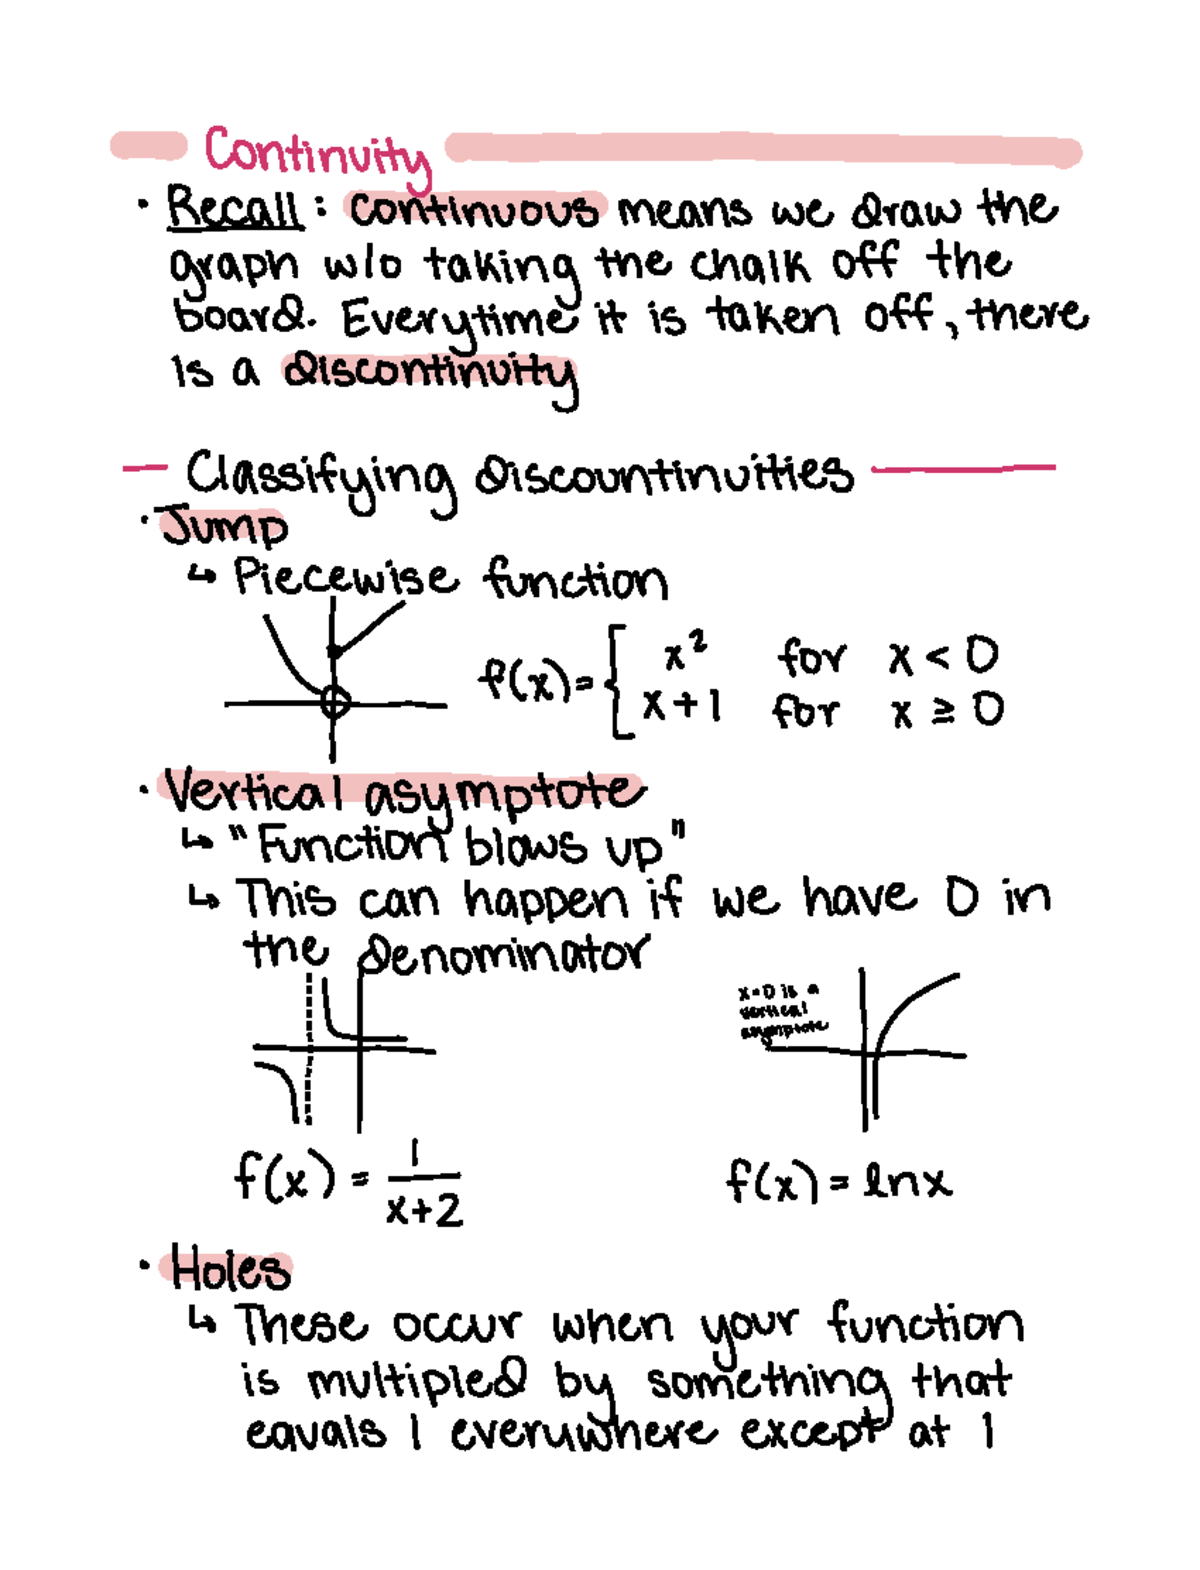 Continuity
• Recall: continuous means we draw the
graph w/o taking the chalk off the
board. Everytime it is taken off, there
is a discontinuity
Classifying discountinuities
• Jump
↳ Piecewise function
f(x) = { x² for x < 0
x + 1 for x ≥ 0
• Vertical asymptote
↳ "Function blows up"
↳ This can happen if we have 0 in
the denominator
x=0 is a
vertical
asymptote
f(x) = 1/(x+2)
f(x) = ln x
• Holes
↳ These occur when your function
is multipled by something that
equals 1 everywhere except at 1